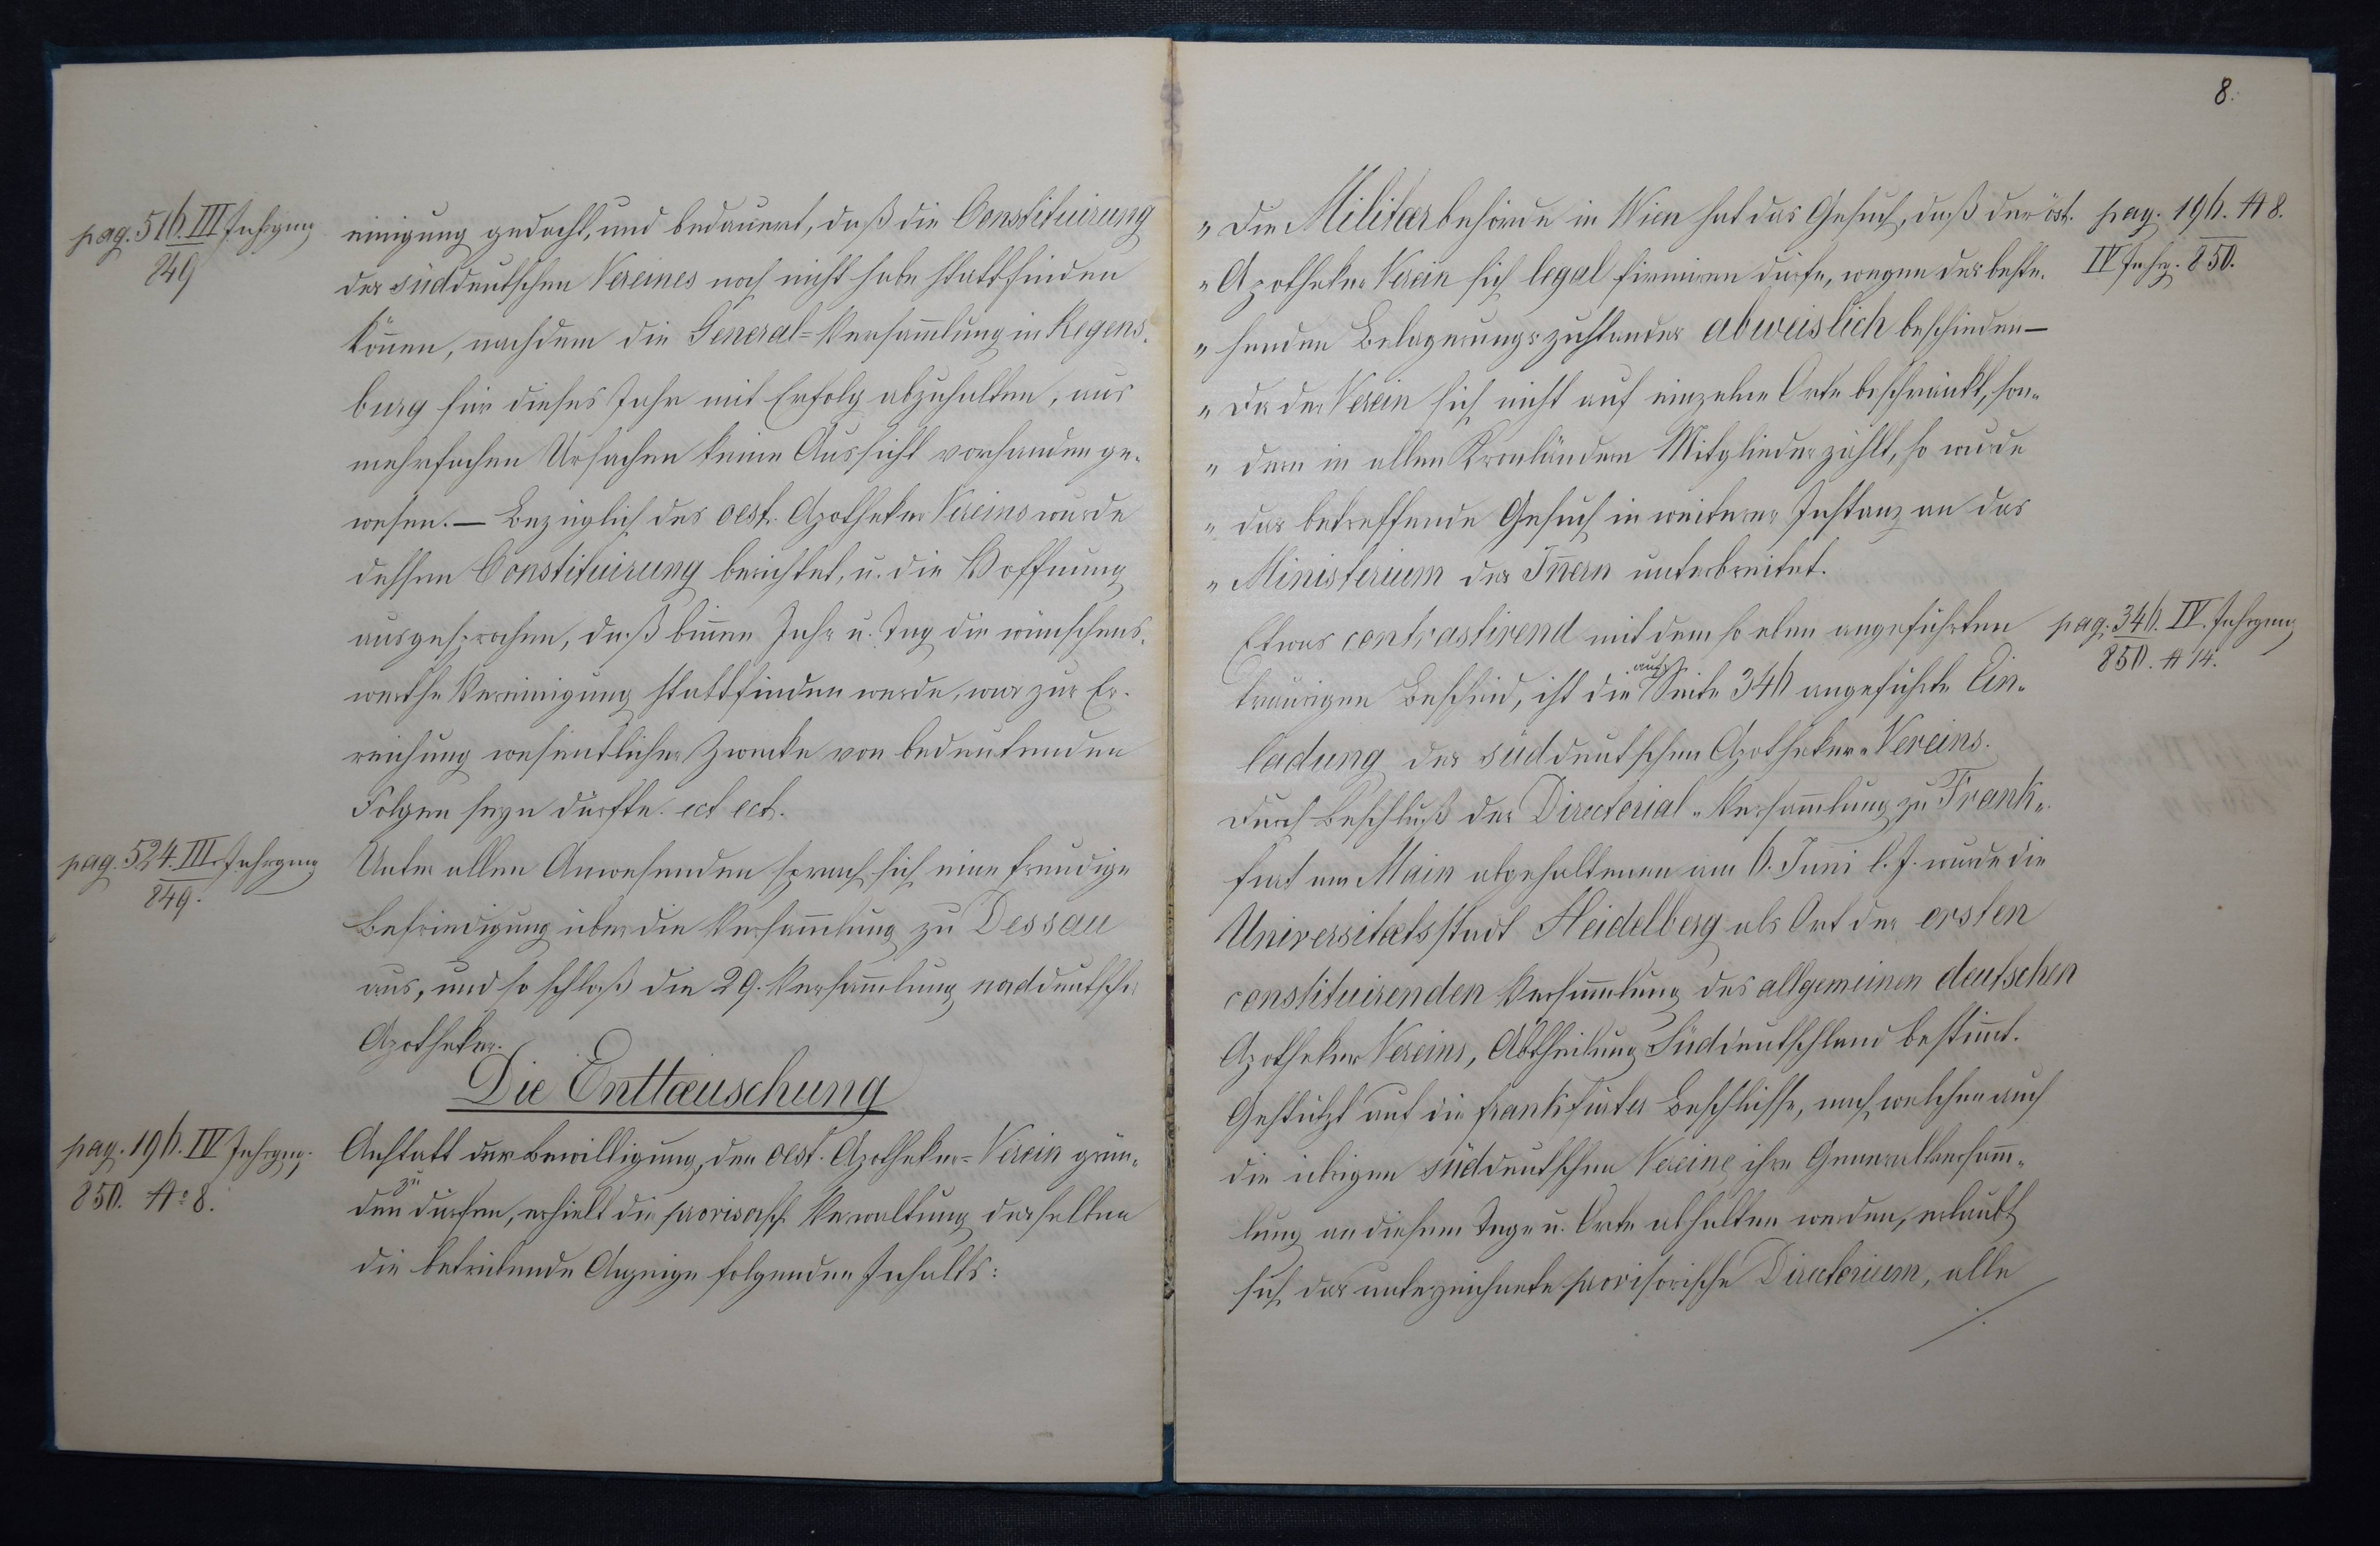 pag. 516. III Jahrgang
849
einigung gedacht, und bedauert, daß die Constituirung
des süddeutschen Vereines noch nicht habe stattfinden
können, nachdem die General=Versam̅lung in Regens-
burg für dieses Jahr mit Erfolg abzuhalten, aus
mehrfachen Ursachen keine Aussicht vorhanden ge-
wesen. — Bezüglich des oest. Apotheker Vereins wurde
dessen Constituirung berichtet, u. die Hoffnung
ausgesprochen, daß bin̅en Jahr u. Tag die wünschens-
werthe Vereinigung stattfinden werde, was zur Er-
reichung wesentlicher Zwecke von bedeutenden
Folgen seyn dürfte. ect ect.
pag. 524. III. Jahrgang
849.
Unter allen Anwesenden sprach sich eine freudige
Befriedigung über die Versam̅lung zu Dessau
aus, und so schloß die 29. Versam̅lung norddeutscher
Apotheker.
Die Enttæuschung
pag. 196. IV Jahrgng.
850. No 8.
Anstatt der Bewilligung, den oest. Apotheker=Verein grün-
den zu dürfen, erhielt die provisorisch Verwaltung desselben
die betrübende Anzeige folgenden Inhalts:
8.
„Die Militærbehörde in Wien hat das Gesuch, daß der öst.
„Apotheker Verein sich legal firmiren dürfe, wegen des beste-
„henden Belagerungszustandes abweislich beschieden—
„Da der Verein sich nicht auf einzelne Orte beschränkt, son-
„dern in allen Kronländern Mitglieder zählt, so wurde
„das betreffende Gesuch in weiterer Instanz an das
„Ministerium des In̅ern unterbreitet.
pag. 196. No 8.
IV Jahrg. 850.
Etwas contrastirend mit dem so eben angeführten
traurigen Bescheid, ist die auf Seite 346 angeführte Ein-
ladung des süddeutschen Apotheker-Vereins.
pag. 346. IV. Jahrgang
850. No 14.
Durch Beschluß der Directorial-Versam̅lung zu Frank-
furt am Main abgehaltenen am 6. Juni l. J. wurde die
Universitætsstadt Heidelberg als Ort der ersten
constituirenden Versam̅lung des allgemeinen deutschen
Apotheker Vereins, Abtheilung Süddeutschland bestim̅t.
Gestützt auf die frankfurter Beschlüsse, nach welchen auch
die übrigen süddeutschen Vereine ihre Generalversam̅-
lung an diesem Tage u. Orte abhalten werden, erlaubt
sich das unterzeichnete provisorische Directorium, alle
./.